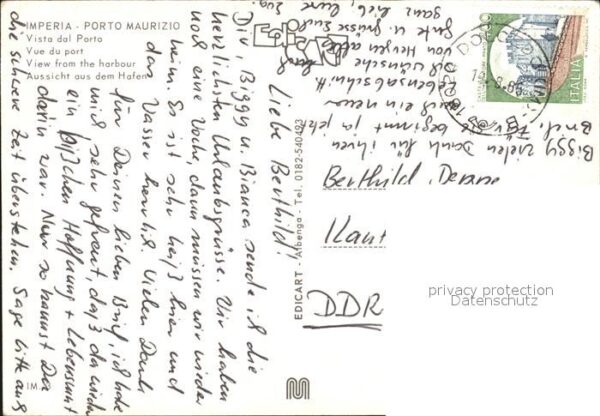 IMPERIA - PORTO MAURIZIO
Vista dal Porto
Vue du port
View from the harbour
Aussicht aus dem Hafen
Liebe Berthild!
Dir, Biggy u. Bianca sende ich die
herzlichsten Urlaubsgrüsse. Wir haben
noch eine Woche, dann müssen wir wieder
heim. Es ist sehr heiß hier und
das Wasser herrlich. Vielen Dank
für Deinen lieben Brief, ich habe
mich sehr gefreut, daß da wieder
ein bißchen Hoffnung + Lebensmut
darin war. Nur so kannst Du
die schwere Zeit überstehen. Sage bitte auch
Biggy vielen Dank für ihren
Brief. Für sie beginnt ja jetzt
auch ein neuer
Lebensabschnitt
ich wünsche
von Herzen alles
Gute u. Grüsse Euch
ganz lieb, Eure
EDICART - Albenga - Tel. 0182-540493
ITALIA
Berthild
Kant
DDR
privacy protection
Datenschutz
IM